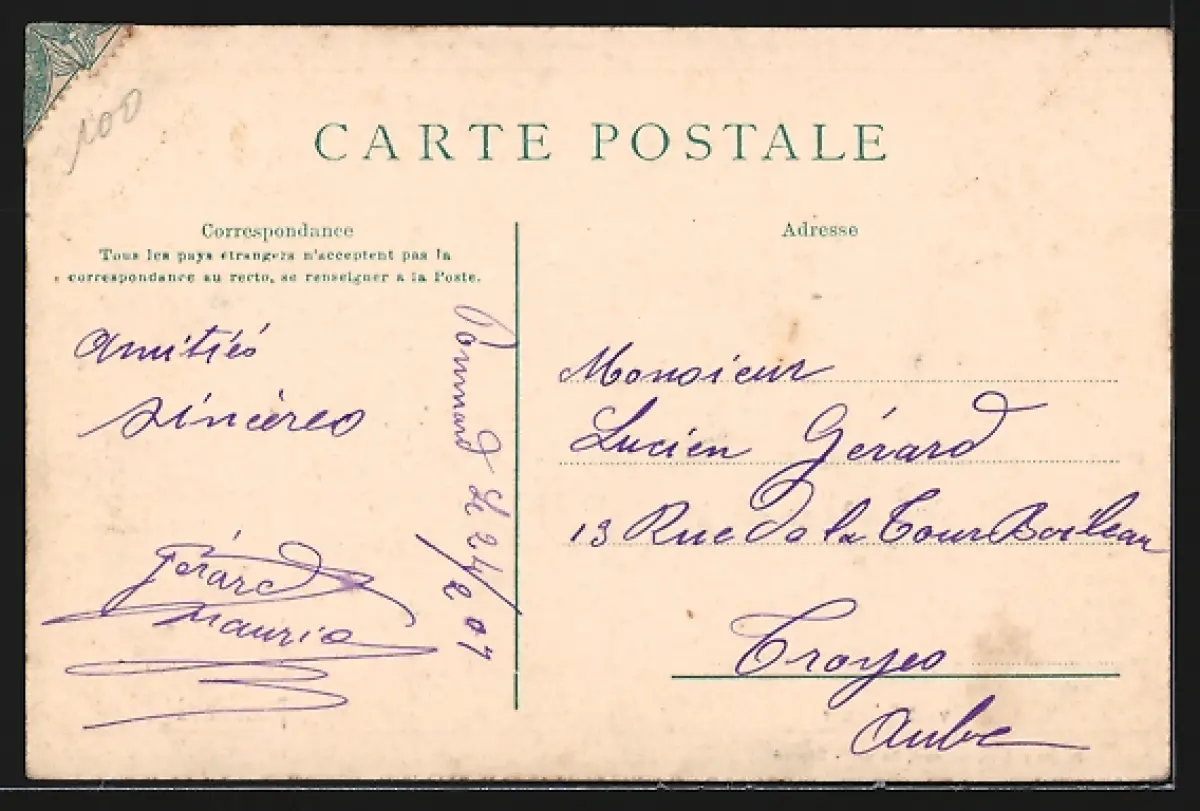 100
CARTE POSTALE
Correspondance
Tous les pays étrangers n'acceptent pas la
correspondance au recto, se renseigner à la Poste.
Amitiés
sincères
Gérard
Maurice
Pommard Le 24/2 07
Adresse
Monsieur
Lucien Gérard
13 Rue de la Tour Boileau
Troyes
Aube